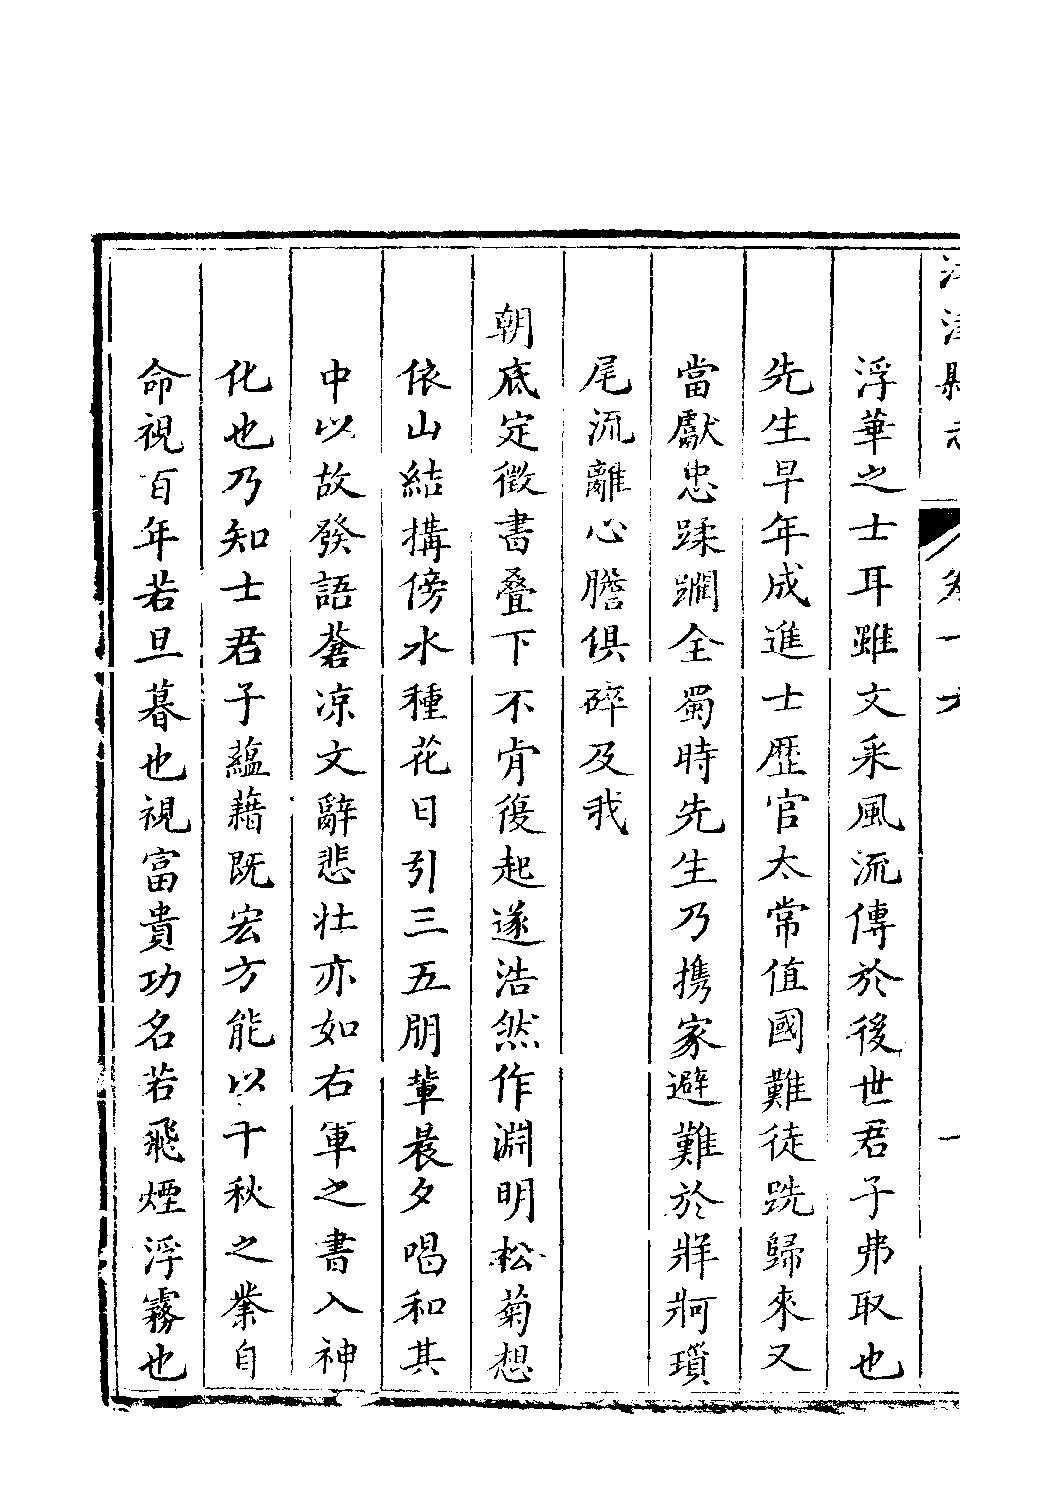 津縣志 卷十六 一
浮華之士耳雖文采風流傳於後世君子弗取也
先生早年成進士歷官太常值國難徒跣歸來又
當獻忠蹂躙全蜀時先生乃携家避難於牂牁瑣
尾流離心膽俱碎及我
朝底定徵書疊下不肯復起遂浩然作淵明松菊想
依山結搆傍水種花日引三五朋輩晨夕唱和其
中以故發語蒼凉文辭悲壯亦如右軍之書入神
化也乃知士君子蘊藉既宏方能以千秋之業自
命視百年若旦暮也視富貴功名若飛煙浮霧也